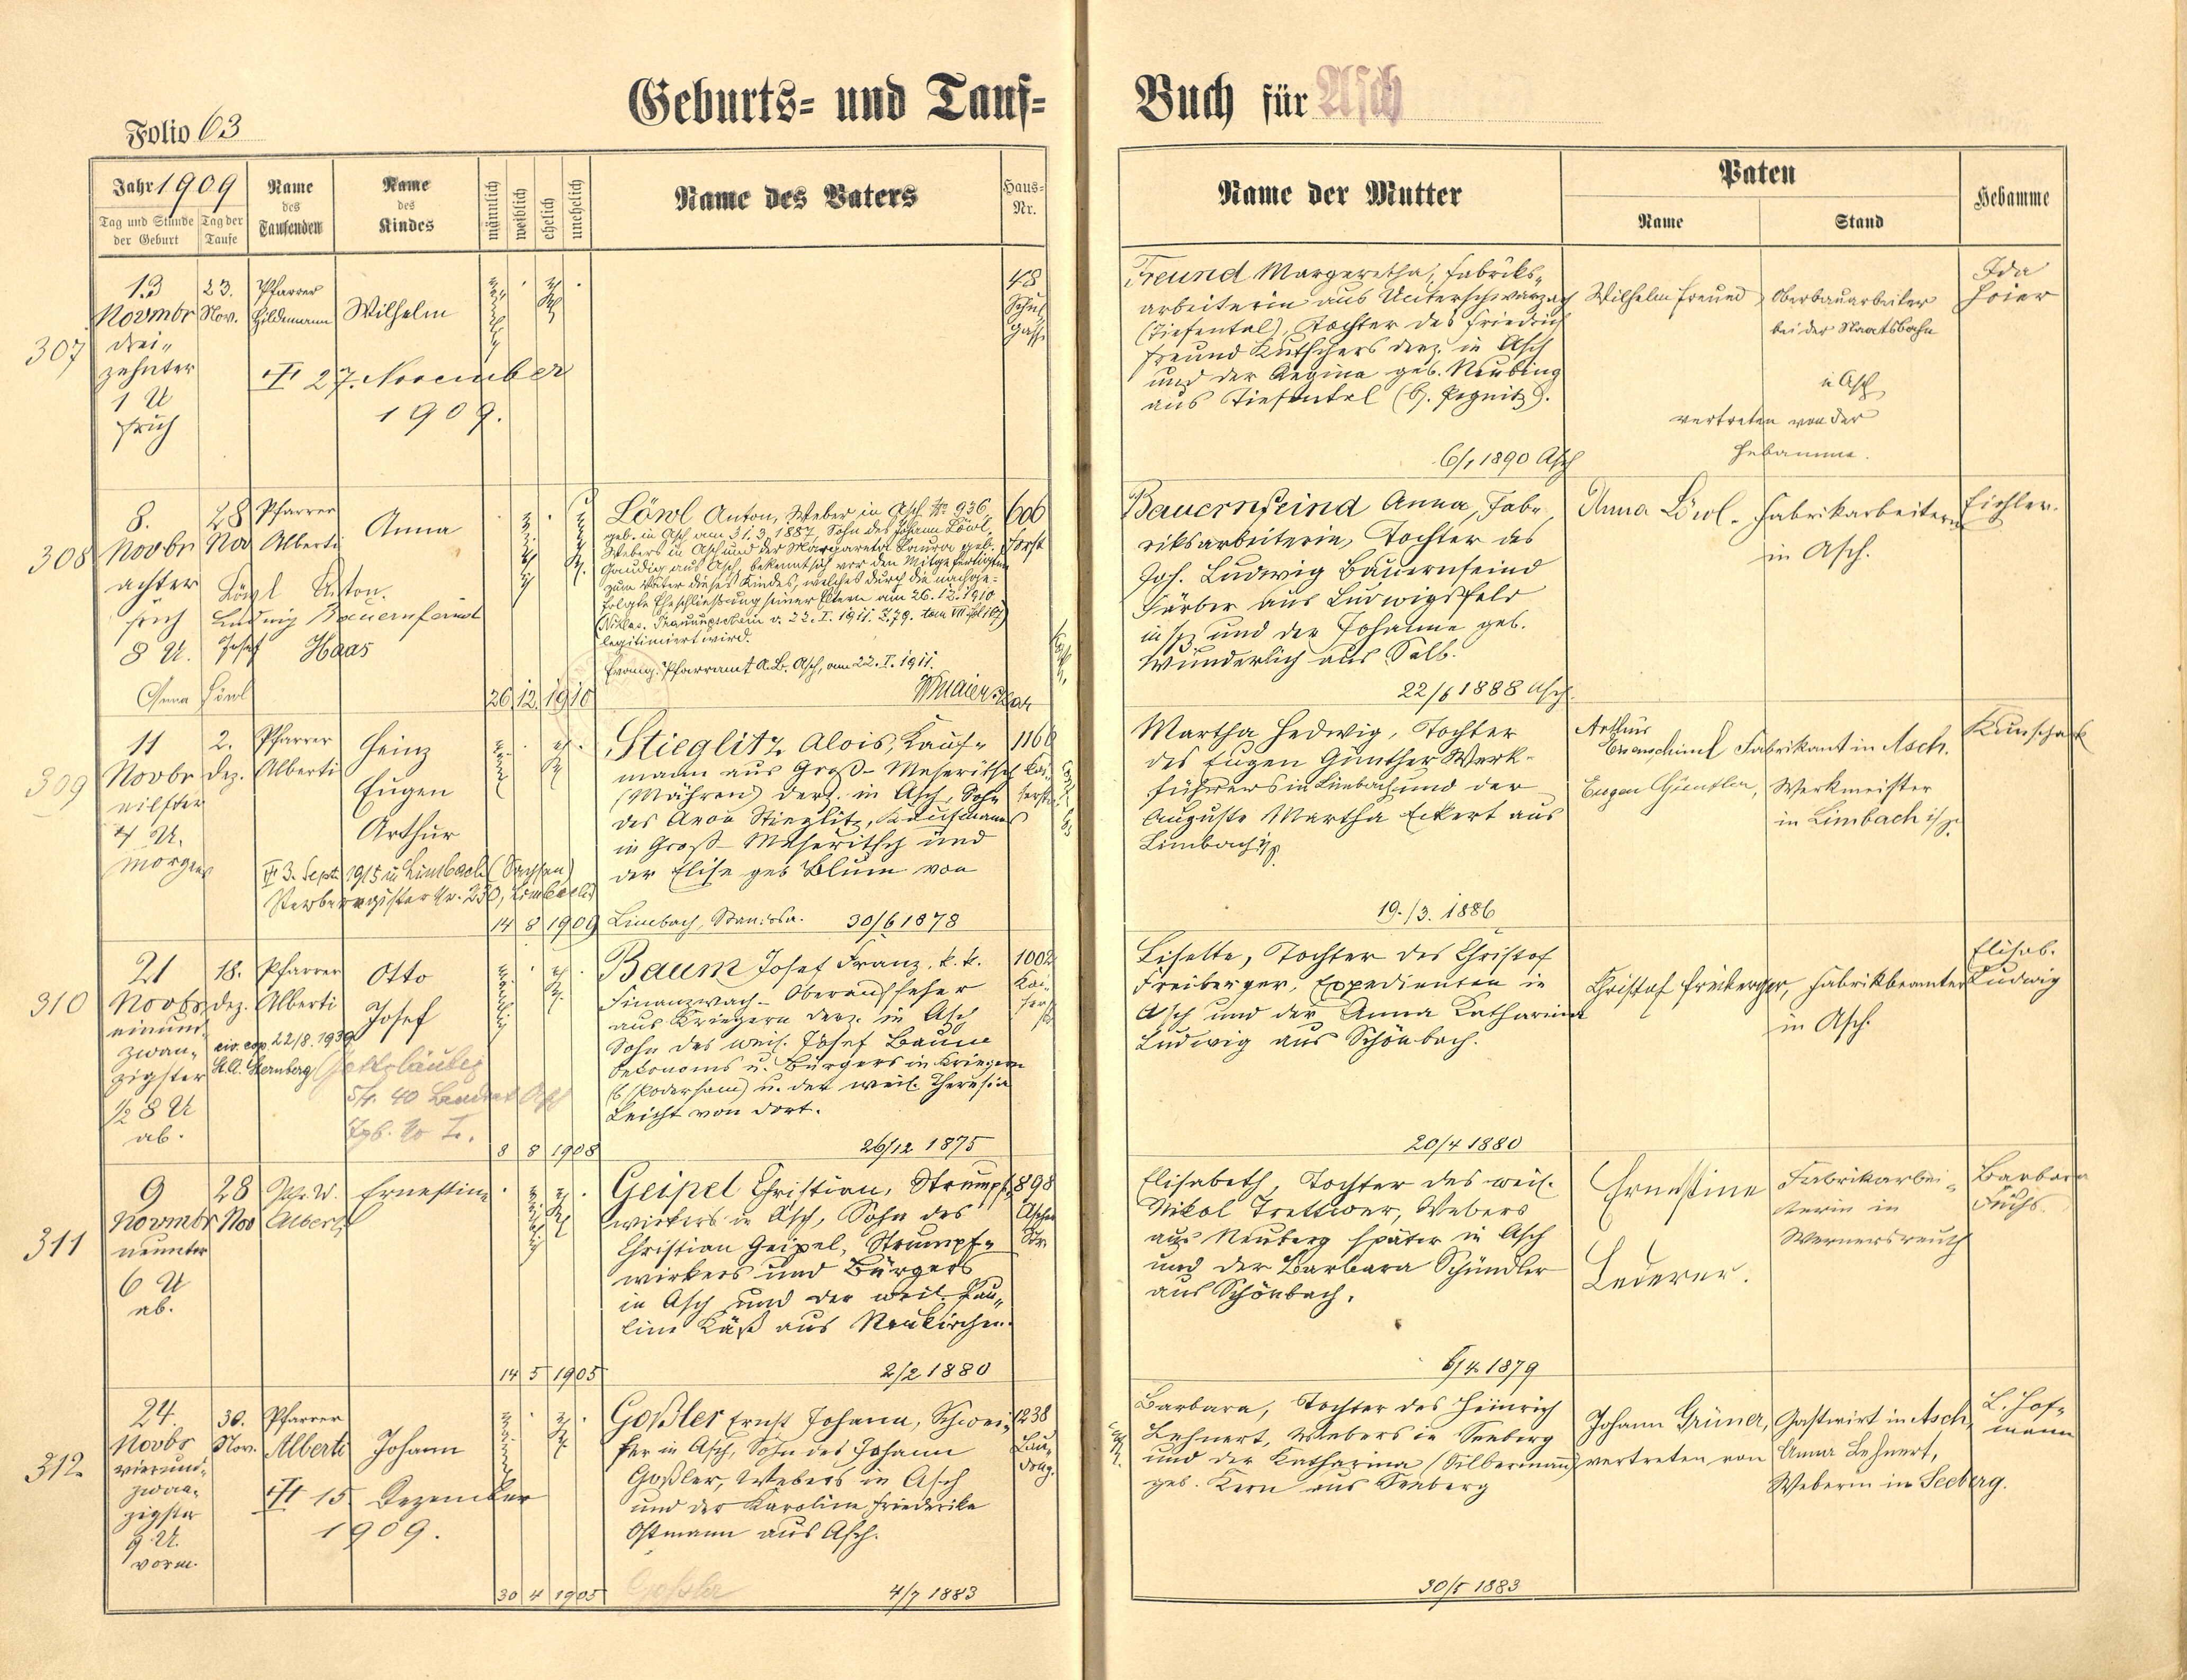 Geburts- und Tauf-
Buch für Asch
Folio 63
Jahr 1909
Tag und Stunde der Geburt
Tag der Taufe
Name des Taufenden
Name des Kindes
männlich
weiblich
ehelich
unehelich
Name des Vaters
Haus-Nr.
Name der Mutter
Paten
Name
Stand
Hebamme
307
13
Novmbr
drei-
zehnter
1 U
früh
23.
Nov.
Pfarrer
Hildemann
Wilhelm
27. November
1909.
48
Schul
gasse
Freund Margaretha, Fabriks-
arbeiterin aus Unterschwarzach
(Tiefental), Tochter des Friedrich
Freund Kutschers derz. in Asch
und der Regina geb. Neubing
aus Tiefental (b. Pegnitz).
6/1 1890 Asch
Wilhelm Freund
Oberbauarbeiter
bei der Staatsbahn
in Asch
vertreten von der
Hebamme.
Ida
Hoier
308
8.
Novbr
achter
früh
8 U.
28
Nov
Pfarrer
Alberti
Anna
Löwl Anton.
Ludwig Bauernfeind
Josef Haas
Anna Löwl
26 12 1910
Löwl Anton, Weber in Asch No 936
geb. in Asch am 31.3.1887, Sohn des Johann Löwl,
Webers in Asch und der Margareta Laura geb.
Gaudig aus Asch, bekennt sich vor den Mitgefertigten
zum Vater dieses Kindes, welches durch die nachge-
folgte Eheschließung seiner Eltern am 26.12.1910
legitimiert wird.
Evang. Pfarramt A.B. Asch, am 22.I.1911.
606
Forst
Bauernfeind Anna, Fab-
riksarbeiterin, Tochter des
Joh. Ludwig Bauernfeind
Färber aus Ludwigsfeld
und der Johanne geb.
Wunderlich aus Selb.
22/6 1888 Asch.
Anna Löwl.
Fabrikarbeiterin
in Asch.
Eichler.
309
11
Novbr
eilfter
4 U.
morgens
2.
Dez.
Pfarrer
Alberti
Heinz
Eugen
Arthur
3. Sept. 1915 in Limbach (Sachsen)
Sterberegister Nr. 230, Limbach
14 8 1909
Stieglitz Alois, Kauf-
mann aus Groß-Meseritsch
(Mähren) derz. in Asch, Sohn
des Aron Stieglitz, Kaufmanns
in Groß-Meseritsch und
der Elise geb Blum von
Limbach, 30/6 1878
1160
Kai-
serstr.
Martha Hedwig, Tochter
des Eugen Günther Werk-
führers in Limbach und der
Auguste Martha Eckert aus
Limbach
19./3. 1886
Arthur
Fabrikant in Asch.
Eugen Günther,
Werkmeister
in Limbach i/S.
310
21
Novbr
einund-
zwan-
zigster
½ 8 U
ab.
18.
Dez.
Pfarrer
Alberti
Otto
Josef
civ. cop. 22/8. 1939
St.A. Sternberg
Gottgläubig
8 8 1908
Baum Josef Franz, k. k.
Finanzwach-Oberaufseher
aus Kriegern derz. in Asch
Sohn des weil. Josef Baum
Oekonoms u. Bürgers in Kriegern
(b. Podersam) u. der weil. Theresia
Leicht von dort.
26/12 1875
1002
Kai-
serstr.
Lisette, Tochter des Christof
Freiberger, Expedienten in
Asch und der Anna Katharina
Ludwig aus Schönbach.
20/4 1880
Christof Freiberger,
Fabrikbeamter
in Asch.
Elisab.
Ludwig
311
9
Novmbr
neunter
6 U
ab.
28
Nov
Pfr. W.
Alberti
Ernestine
14 5 1905
Geipel Christian, Strumpf-
wirkers in Asch, Sohn des
Christian Geipel, Strumpf-
wirkers und Bürgers
in Asch und der weil. Pau-
line Käß aus Neukirchen.
2/2 1880
898
Ascher
Str.
Elisabeth, Tochter des weil.
Nikol Trettwer, Webers
aus Neuberg später in Asch
und der Barbara Schindler
aus Schönbach.
6/4 1879
Ernestine
Lederer.
Fabrikarbei-
terin in
Wernersreuth
Barbara
Fuchs.
312
24.
Novbr
vierund-
zwan-
zigster
9 U.
vorm.
30.
Nov.
Pfarrer
Alberti
Johann
15. Dezember
1909.
30 4 1905
Goßler Ernst Johann,
in Asch, Sohn des Johann
Goßler, Webers in Asch
und der Karoline Friederike
Ostmann aus Asch.
Goßler
4/7 1883
1238
Barbara, Tochter des Heinrich
Lehnert, Webers in Seeberg
und der Katharina (Silbermann)
geb. Kern aus Seeberg
30/5 1883
Johann Grüner, Gastwirt in Asch,
vertreten von Anna Lehnert,
Weberin in Seeberg.
L. Hof-
mann